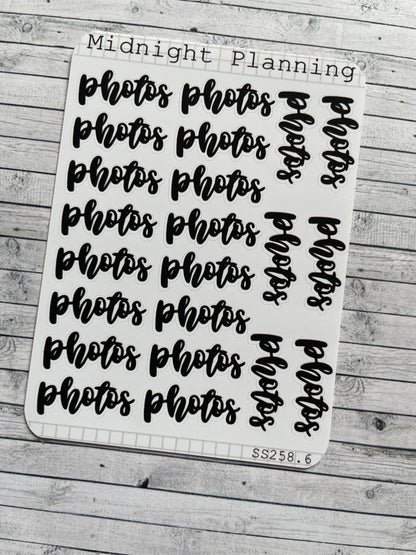 Midnight Planning
photos photos photos photos
photos photos
photos photos
photos photos photos photos
photos photos
photos photos
photos photos photos photos
photos photos
SS258.6